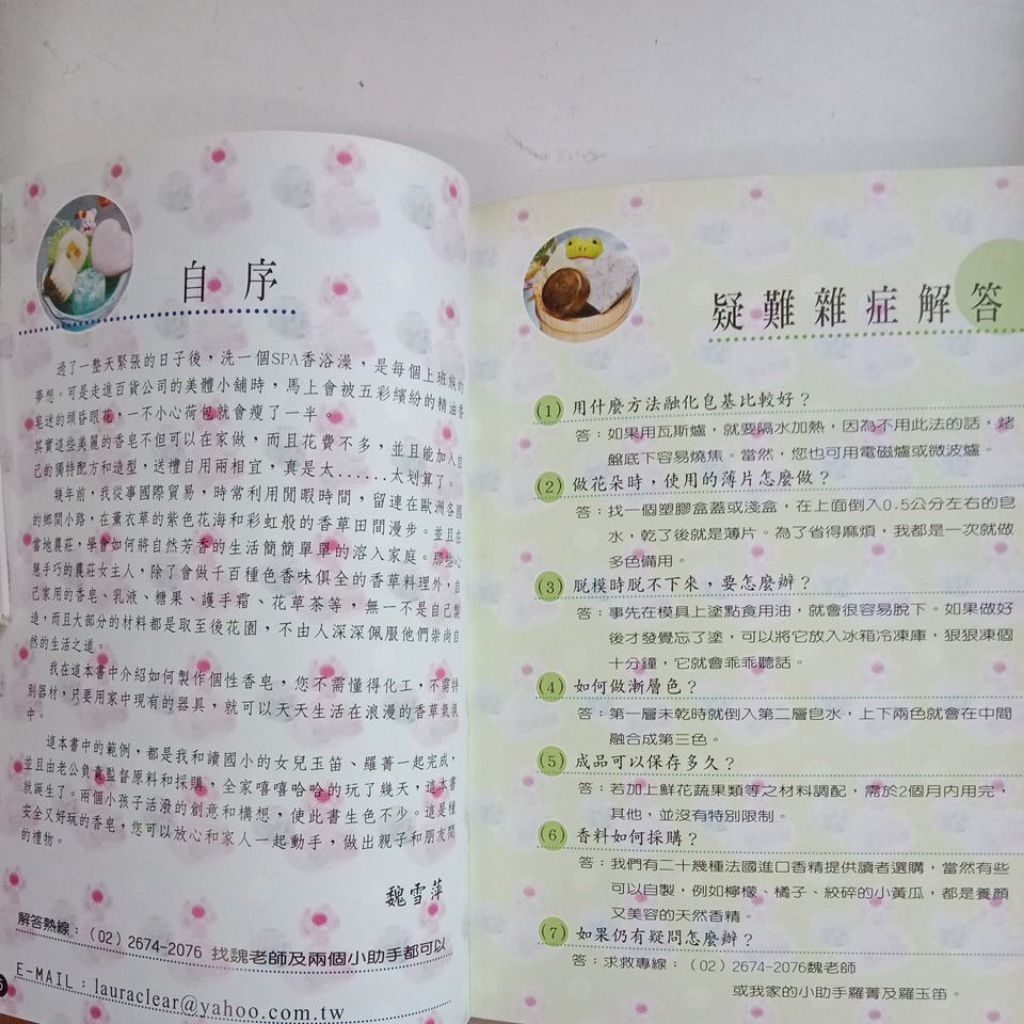 自序
過了一整天緊張的日子後，洗一個SPA香浴澡，是每個上班族的
夢想。可是走進百貨公司的美體小舖時，馬上會被五彩繽紛的精油香
皂迷的頭昏眼花，一不小心荷包就會瘦了一半。
其實這些美麗的香皂不但可以在家做，而且花費不多，並且能加入自
己的獨特配方和造型，送禮自用兩相宜，真是太......太划算了。
幾年前，我從事國際貿易，時常利用閒暇時間，留連在歐洲各國
的鄉間小路，在薰衣草的紫色花海和彩虹般的香草田間漫步。並且在
當地農莊，學會如何將自然芳香的生活簡簡單單的溶入家庭。那些心
慧手巧的農莊女主人，除了會做千百種色香味俱全的香草料理外，自
己家用的香皂、乳液、糖果、護手霜、花草茶等，無一不是自己製
造，而且大部分的材料都是取至後花園，不由人深深佩服他們崇尚自
然的生活之道。
我在這本書中介紹如何製作個性香皂，您不需懂得化工，不需特
別器材，只要用家中現有的器具，就可以天天生活在浪漫的香草氣氛
中。
這本書中的範例，都是我和讀國小的女兒玉笛、羅菁一起完成，
並且由老公負責監督原料和採購，全家嘻嘻哈哈的玩了幾天，這本書
就誕生了。兩個小孩子活潑的創意和構想，使此書生色不少。這是種
安全又好玩的香皂，您可以放心和家人一起動手，做出親子和朋友間
的禮物。
魏雪萍
解答熱線：（02）2674-2076 找魏老師及兩個小助手都可以
E-MAIL：lauraclear@yahoo.com.tw
疑難雜症解答
(1) 用什麼方法融化皂基比較好？
答：如果用瓦斯爐，就要隔水加熱，因為不用此法的話，烤
盤底下容易燒焦。當然，您也可用電磁爐或微波爐。
(2) 做花朵時，使用的薄片怎麼做？
答：找一個塑膠盒蓋或淺盒，在上面倒入0.5公分左右的皂
水，乾了後就是薄片。為了省得麻煩，我都是一次就做
多色備用。
(3) 脫模時脫不下來，要怎麼辦？
答：事先在模具上塗點食用油，就會很容易脫下。如果做好
後才發覺忘了塗，可以將它放入冰箱冷凍庫，狠狠凍個
十分鐘，它就會乖乖聽話。
(4) 如何做漸層色？
答：第一層未乾時就倒入第二層皂水，上下兩色就會在中間
融合成第三色。
(5) 成品可以保存多久？
答：若加上鮮花蔬果類等之材料調配，需於2個月內用完，
其他，並沒有特別限制。
(6) 香料如何採購？
答：我們有二十幾種法國進口香精提供讀者選購，當然有些
可以自製，例如檸檬、橘子、絞碎的小黃瓜，都是養顏
又美容的天然香精。
(7) 如果仍有疑問怎麼辦？
答：求救專線：（02）2674-2076魏老師
或我家的小助手羅菁及羅玉笛。